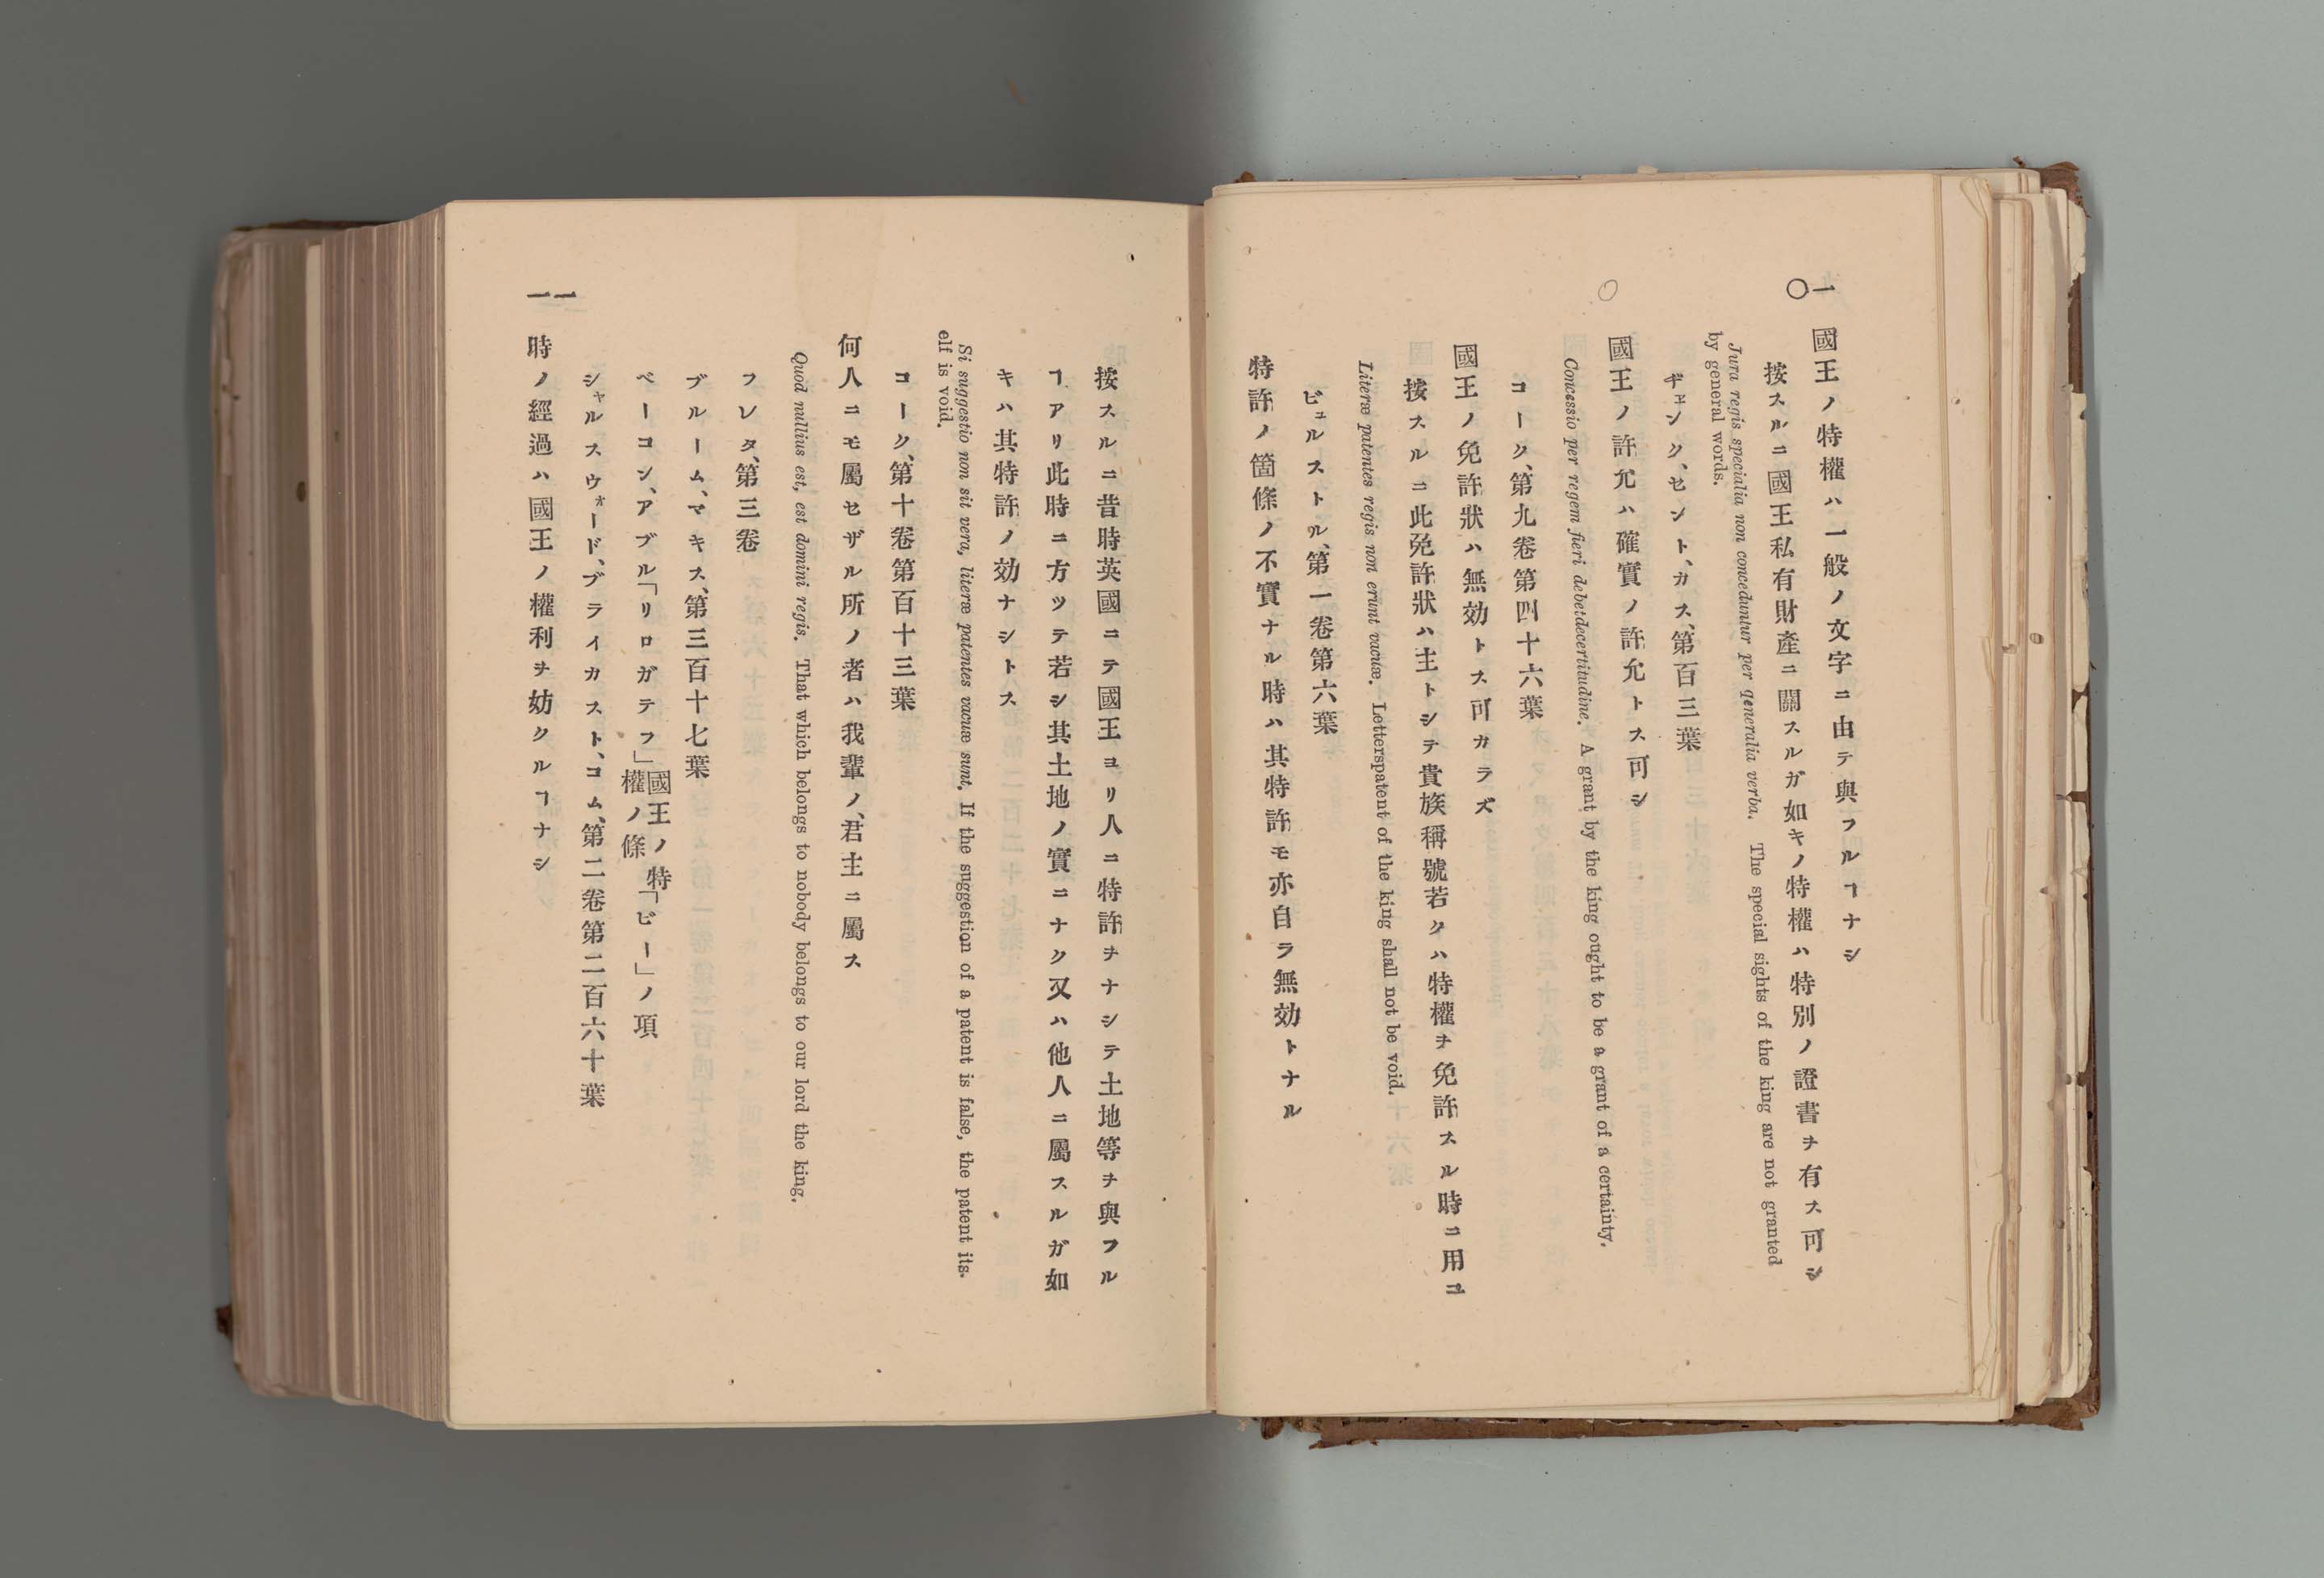 一〇
國王ノ特權ハ一般ノ文字ニ由テ與フルヿナシ
按スルニ國王私有財產ニ關スルガ如キノ特權ハ特別ノ證書ヲ有ス可シ
Jura regis specialia non conceduntur per generalia verba. The special sights of the king are not granted
by general words.
ヂェンク、セント、カス、第百三葉
國王ノ許允ハ確實ノ許允トス可シ
Concessio per regem fieri debetdecertitudine. A grant by the king ought to be a grant of a certainty.
コーク、第九卷第四十六葉
國王ノ免許狀ハ無効トス可カラズ
按スルニ此免許狀ハ主トシテ貴族稱號若クハ特權ヲ免許スル時ニ用ユ
Literæ patentes regis non erunt vacuæ. Letterspatent of the king shall not be void.
ビュルストル、第一卷第六葉
特許ノ箇條ノ不實ナル時ハ其特許モ亦自ラ無効トナル
按スルニ昔時英國ニテ國王ヨリ人ニ特許ヲナシテ土地等ヲ與フル
ヿアリ此時ニ方ツテ若シ其土地ノ實ニナク又ハ他人ニ屬スルガ如
キハ其特許ノ効ナシトス
Si suggestio non sit vera, literæ patentes vacuæ sunt. If the suggestion of a patent is false, the patent its-
elf is void.
コーク、第十卷第百十三葉
何人ニモ屬セザル所ノ者ハ我輩ノ君主ニ屬ス
Quod nullius est, est domini regis. That which belongs to nobody belongs to our lord the king.
フレタ、第三卷
ブルーム、マキス、第三百十七葉
ベーコン、アブル「リロガテフ」國王ノ特權ノ條「ビー」ノ項
シャルスウォード、ブライカスト、コム、第二卷第二百六十葉
時ノ經過ハ國王ノ權利ヲ妨クルヿナシ
一一